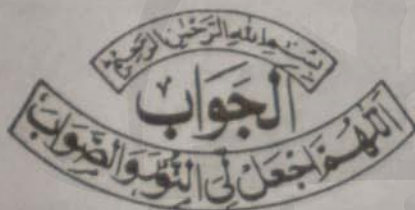 بِسْمِ اللهِ الرَّحْمٰنِ الرَّحِيْمِ
اَلْجَوَابُ
اَللّٰهُمَّ اجْعَلْ لِّی النُّوْرَ وَالصَّوَابَ